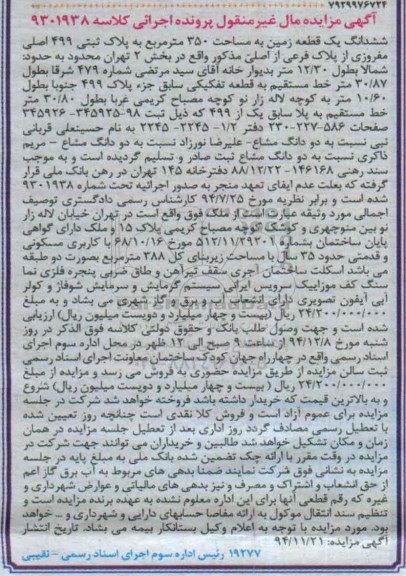 ۷۹۲۹۷۶۷۲۴
آگهی مزایده مال غیرمنقول پرونده اجرائی کلاسه ۹۳۰۱۹۳۸
ششدانگ یک قطعه زمین به مساحت ۳۵۰ مترمربع به پلاک ثبتی ۴۹۹ اصلی
مفروزی از پلاک فرعی از اصلی مذکور واقع در بخش ۲ تهران محدود به حدود:
شمالا بطول ۱۲/۳۰ متر بدیوار خانه آقای سید مرتضی شماره ۴۷۹ شرقا بطول
۳۰/۸۷ متر خط مستقیم به قطعه تفکیکی سابق جزء پلاک ۴۹۹ جنوبا بطول
۱۰/۶۰ متر به کوچه لاله زار نو کوچه مصباح کریمی غربا بطول ۳۰/۸۰ متر
خط مستقیم به پلا سابق یک از ۴۹۹ که ذیل ثبت ۹۸-۳۴۵۹۲۵- ۳۴۵۹۲۶
صفحات ۵۸۶-۲۲۷-۲۳۰ دفتر ۱/۲- ۲۲۴۵- ۲۲۴۵ به نام حسینعلی قربانی
نبی نسبت به دو دانگ مشاع- علیرضا نورزاد نسبت به دو دانگ مشاع - مریم
ذاکری نسبت به دو دانگ مشاع ثبت صادر و تسلیم گردیده است و به موجب
سند رهنی ۱۴۶۱۶۸- ۸۸/۱۲/۲۲ دفترخانه ۱۴۵ تهران در رهن بانک ملی قرار
گرفته که بعلت عدم ایفای تعهد منجر به صدور اجرائیه تحت شماره ۹۳۰۱۹۳۸
شده است و برابر نظریه مورخ ۹۴/۷/۲۵ کارشناس رسمی دادگستری توصیف
اجمالی مورد وثیقه عبارت است از ملک فوق واقع است در تهران خیابان لاله زار
نو بین منوچهری و کوشک کوچه مصباح کریمی پلاک ۱۵ و ملک دارای گواهی
پایان ساختمان بشماره ۵۱۲/۱۱/۲۹۲۰۱ مورخ ۶۸/۱۰/۱۶ با کاربری مسکونی
و قدمتی حدود ۳۵ سال با مساحت زیربنای کل ۳۸۸ مترمربع بصورت دو طبقه
می باشد اسکلت ساختمان آجری سقف تیرآهن و طاق ضربی پنجره فلزی نما
سنگ کف موزاییک سرویس ایرانی سیستم گرمایش و سرمایش شوفاژ و کولر
آبی آیفون تصویری دارای انشعاب آب و برق و گاز شهری می باشد و به مبلغ
۲۴/۲۰۰/۰۰۰/۰۰۰ ریال (بیست و چهار میلیارد و دویست میلیون ریال) ارزیابی
شده است و جهت وصول طلب بانک و حقوق دولتی کلاسه فوق الذکر در روز
شنبه مورخ ۹۴/۱۲/۸ از ساعت ۹ صبح الی ۱۲ ظهر در محل اداره سوم اجرای
اسناد رسمی واقع در چهارراه جهان کودک ساختمان معاونت اجرای اسناد رسمی
ثبت سالن مزایده از طریق مزایده حضوری به فروش می رسد و مزایده از مبلغ
۲۴/۲۰۰/۰۰۰/۰۰۰ ریال (بیست و چهار میلیارد و دویست میلیون ریال) شروع
و به بالاترین قیمت که خریدار داشته باشد فروخته خواهد شد شرکت در جلسه
مزایده برای عموم آزاد است و فروش کلا نقدی است چنانچه روز تعیین شده
با تعطیل رسمی مصادف گردد روز اداری بعد از تعطیل جلسه مزایده در همان
زمان و مکان تشکیل خواهد شد طالبین و خریداران می توانند جهت شرکت در
مزایده در وقت مقرر با ارائه چک تضمین شده بانک ملی به مبلغ پایه در جلسه
مزایده به نشانی فوق شرکت نمایند ضمنا بدهی های مربوط به آب برق گاز اعم
از حق انشعاب و اشتراک و مصرف و نیز بدهی های مالیاتی و عوارض شهرداری و
غیره که رقم قطعی آنها برای این اداره معلوم نشده به عهده برنده مزایده است و
تنظیم سند انتقال موکول به ارائه مفاصا حسابهای دارایی و شهرداری و .. خواهد
بود. مورد مزایده با توجه به اعلام وکیل بستانکار بیمه می باشد. تاریخ انتشار
آگهی مزایده: ۹۴/۱۱/۲۱
۱۹۲۷۷ رئیس اداره سوم اجرای اسناد رسمی - نقیبی